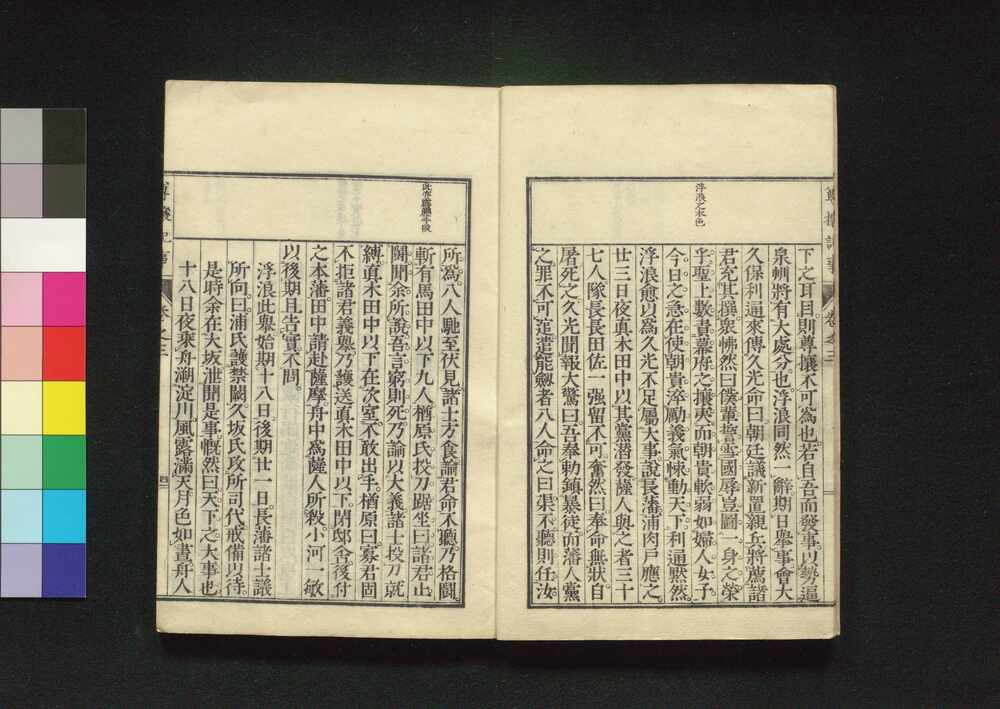 浮浪之本色
下之耳目。則尊攘不可為也。若自吾而發事。以勢逼
泉州將有大處分也。浮浪同然一辭。期日舉事。會大
久保利通來傳久光命曰。朝廷議新置親兵。將薦諸
君充其撰。衆怫然曰。僕輩誓雪國辱。豈圖一身之榮
乎。聖上數書幕府之攘夷。而朝貴軟弱如婦人女子。
今日之急。在使朝貴淬勵義氣。悚動天下。利通默然。
浮浪愈以為久光不足屬大事。說長藩浦肉戶應之。
廿三日夜。真木田中以其黨潛發。薩人與之者三十
七人。隊長長田佐一強留不可。奮然曰。奉命無狀。自
屠死之。久光聞報大驚曰。吾奉勅鎮暴徒。而藩人黨
之。罪不可逭。遣能劔者八人。命之曰。渠不聽則任汝
尊攘記事 卷之三
所為。八人馳至伏見。諸士方食。諭君命不聽。乃格鬪。
斬有馬田中以下九人。楢原氏投刀踞坐曰。諸君止
鬪。聞余所說。吾言窮則死。乃諭以大義。諸士投刀就
縛。真木田中以下在次室。不敢出手。楢原曰。寡君固
不拒諸君義舉。乃護送真木田中以下。閉邸舍。後付
之本藩。田中請赴薩摩。舟中為薩人所殺。小河一敏
以後期且告實。不問。
浮浪此舉。始期十八日。後期廿一日。長藩諸士議
所向曰。浦氏護禁闕。久坂氏攻所司代。戒備以待。
是時余在大坂。泄聞是事。慨然曰。天下之大事也。
十八日夜乘舟溯淀川。風露滿天。月色如晝。舟人
尊攘記事 卷之三